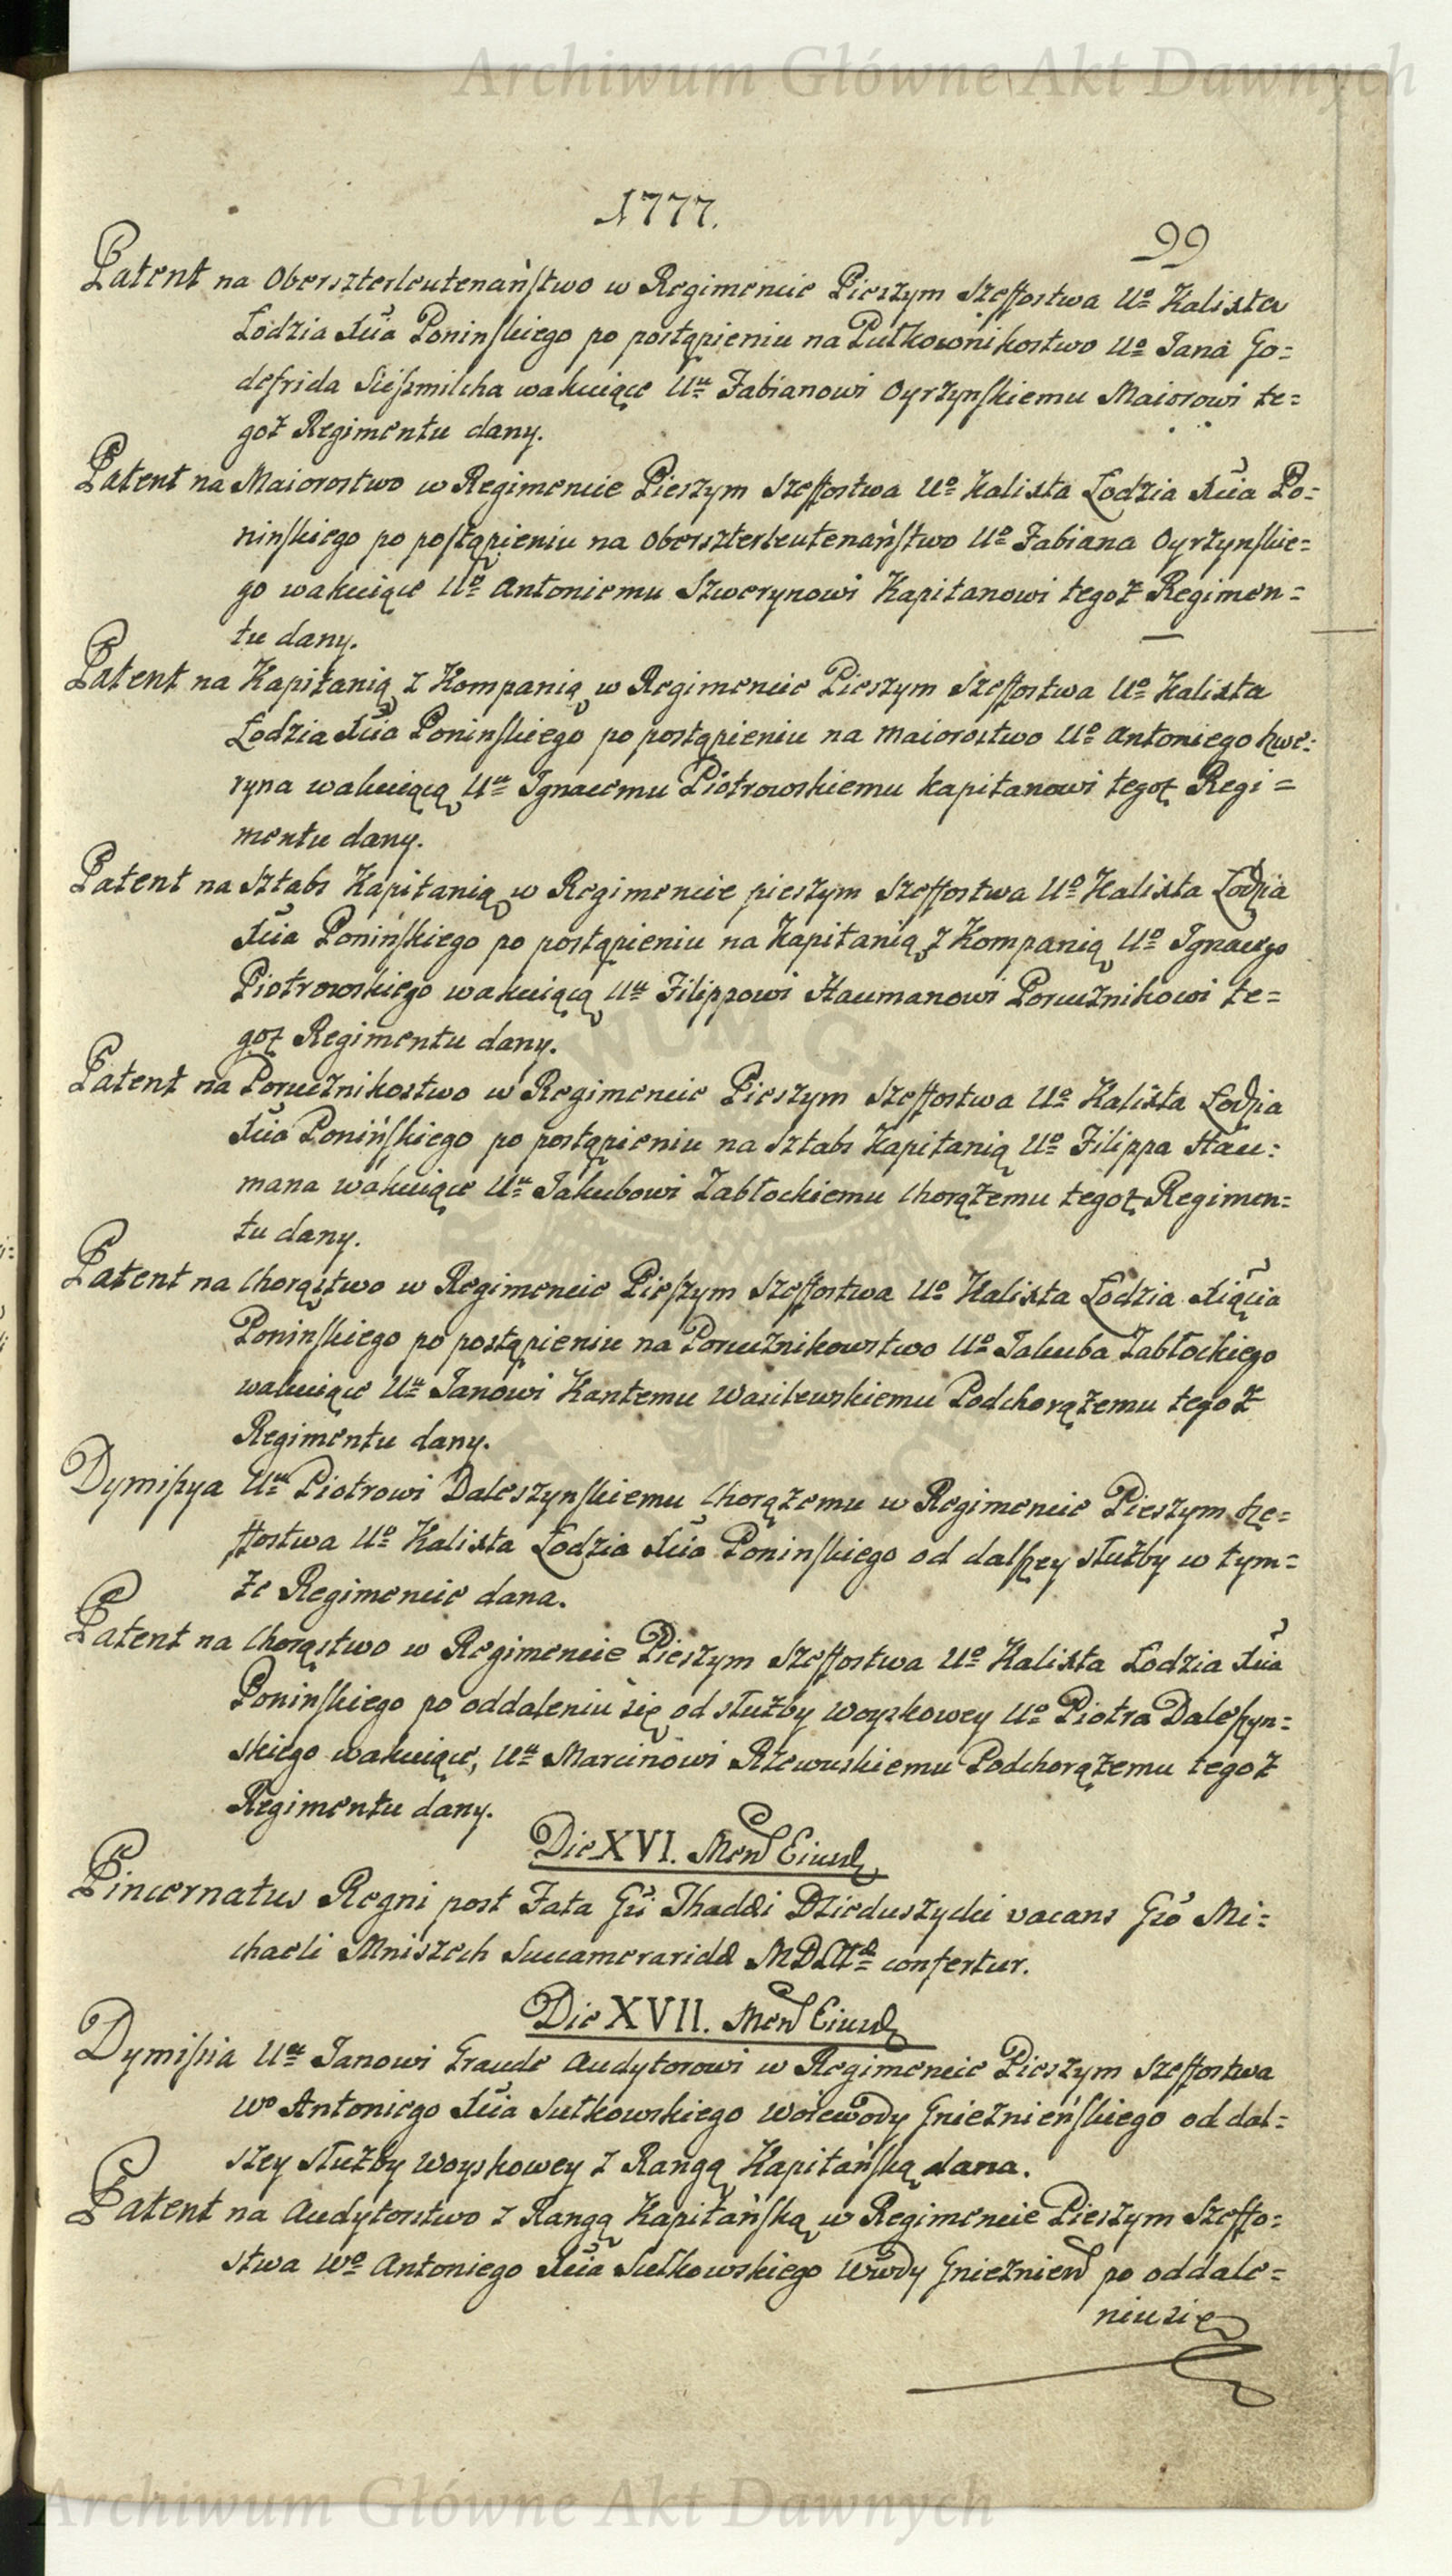 Archiwum Główne Akt Dawnych
1777.
99
Patent na Oberszterleutenaństwo w Regimencie Pieszym Szeffostwa Uo Kalixta
Łodzia Xcia Poninskiego po postąpieniu na Pułkownikostwo Uo Jana Go=
defrida Siészmilcha wakuiące Uu Fabianowi Oyrzynskiemu Maiorowi te=
goż Regimentu dany.
Patent na Maiorostwo w Regimencie Pieszym Szeffostwa Uo Kalixta Łodzia Xcia Po=
ninskiego po postąpieniu na Oberszterleutenaństwo Uo Fabiana Oyrzynskie=
go wakuiące Uo Antoniemu Szwerynowi Kapitanowi tegoż Regimen=
tu dany.
Patent na Kapitanią z Kompanią w Regimencie Pieszym Szeffostwa Uo Kalixta
Łodzia Xcia Poninskiego po postąpieniu na maiorostwo Uo Antoniego Szwe=
ryna wakuiącą Uu Ignacemu Piotrowskiemu kapitanowi tegoż Regi=
mentu dany.
Patent na Sztabs Kapitanią w Regimencie pieszym Szeffostwa Uo Kalixta Łodzia
Xcia Ponińskiego po postąpieniu na Kapitanią z Kompanią Uo Ignacego
Piotrowskiego wakuiącą Uu Filippowi Haumanowi Porucznikowi te=
goż Regimentu dany.
Patent na Porucznikostwo w Regimencie Pieszym Szeffostwa Uo Kalixta Łodzia
Xcia Ponińskiego po postąpieniu na Sztabs Kapitanią Uo Filippa Hau=
mana wakuiące Uu Jakubowi Zabłockiemu Chorążemu tegoż Regimen=
tu dany.
Patent na Chorąstwo w Regimencie Pieszym Szeffostwa Uo Kalixta Łodzia Xiącia
Poninskiego po postąpieniu na Porucznikowstwo Uo Jakuba Zabłockiego
wakuiące Uu Janowi Kantemu Wasilewskiemu Podchorążemu tegoż
Regimentu dany.
Dymissya Uu Piotrowi Daleszynskiemu Chorążemu w Regimencie Pieszym Sze=
ffostwa Uo Kalixta Łodzia Xcia Poninskiego od dalszey służby w tym=
że Regimencie dana.
Patent na Chorąstwo w Regimencie Pieszym Szeffostwa Uo Kalixta Łodzia Xcia
Poninskiego po oddaleniu się od służby Woyskowey Uo Piotra Daleszyn=
skiego wakuiące, Uu Marcinowi Rzewuskiemu Podchorążemu tegoż
Regimentu dany.
Die XVI. Men Eiusd
Pincernatus Regni post Fata Gsi Thaddæi Dzieduszycki vacans Gso Mi=
chaeli Mniszech Succameraridæ MDLitt confertur.
Die XVII. Men Eiusd
Dymissia Uu Janowi Graude Audytorowi w Regimencie Pieszym Szeffostwa
Wo Antoniego Xcia Sułkowskiego Woiewody Gnieznieńskiego od dal=
szey służby Woyskowey z Rangą Kapitańską dana.
Patent na Audytorstwo z Rangą Kapitańską w Regimencie Pieszym Szeffo=
stwa Wo Antoniego Xcia Sułkowskiego Wwdy Gniezniend po oddale=
niu się
Archiwum Główne Akt Dawnych